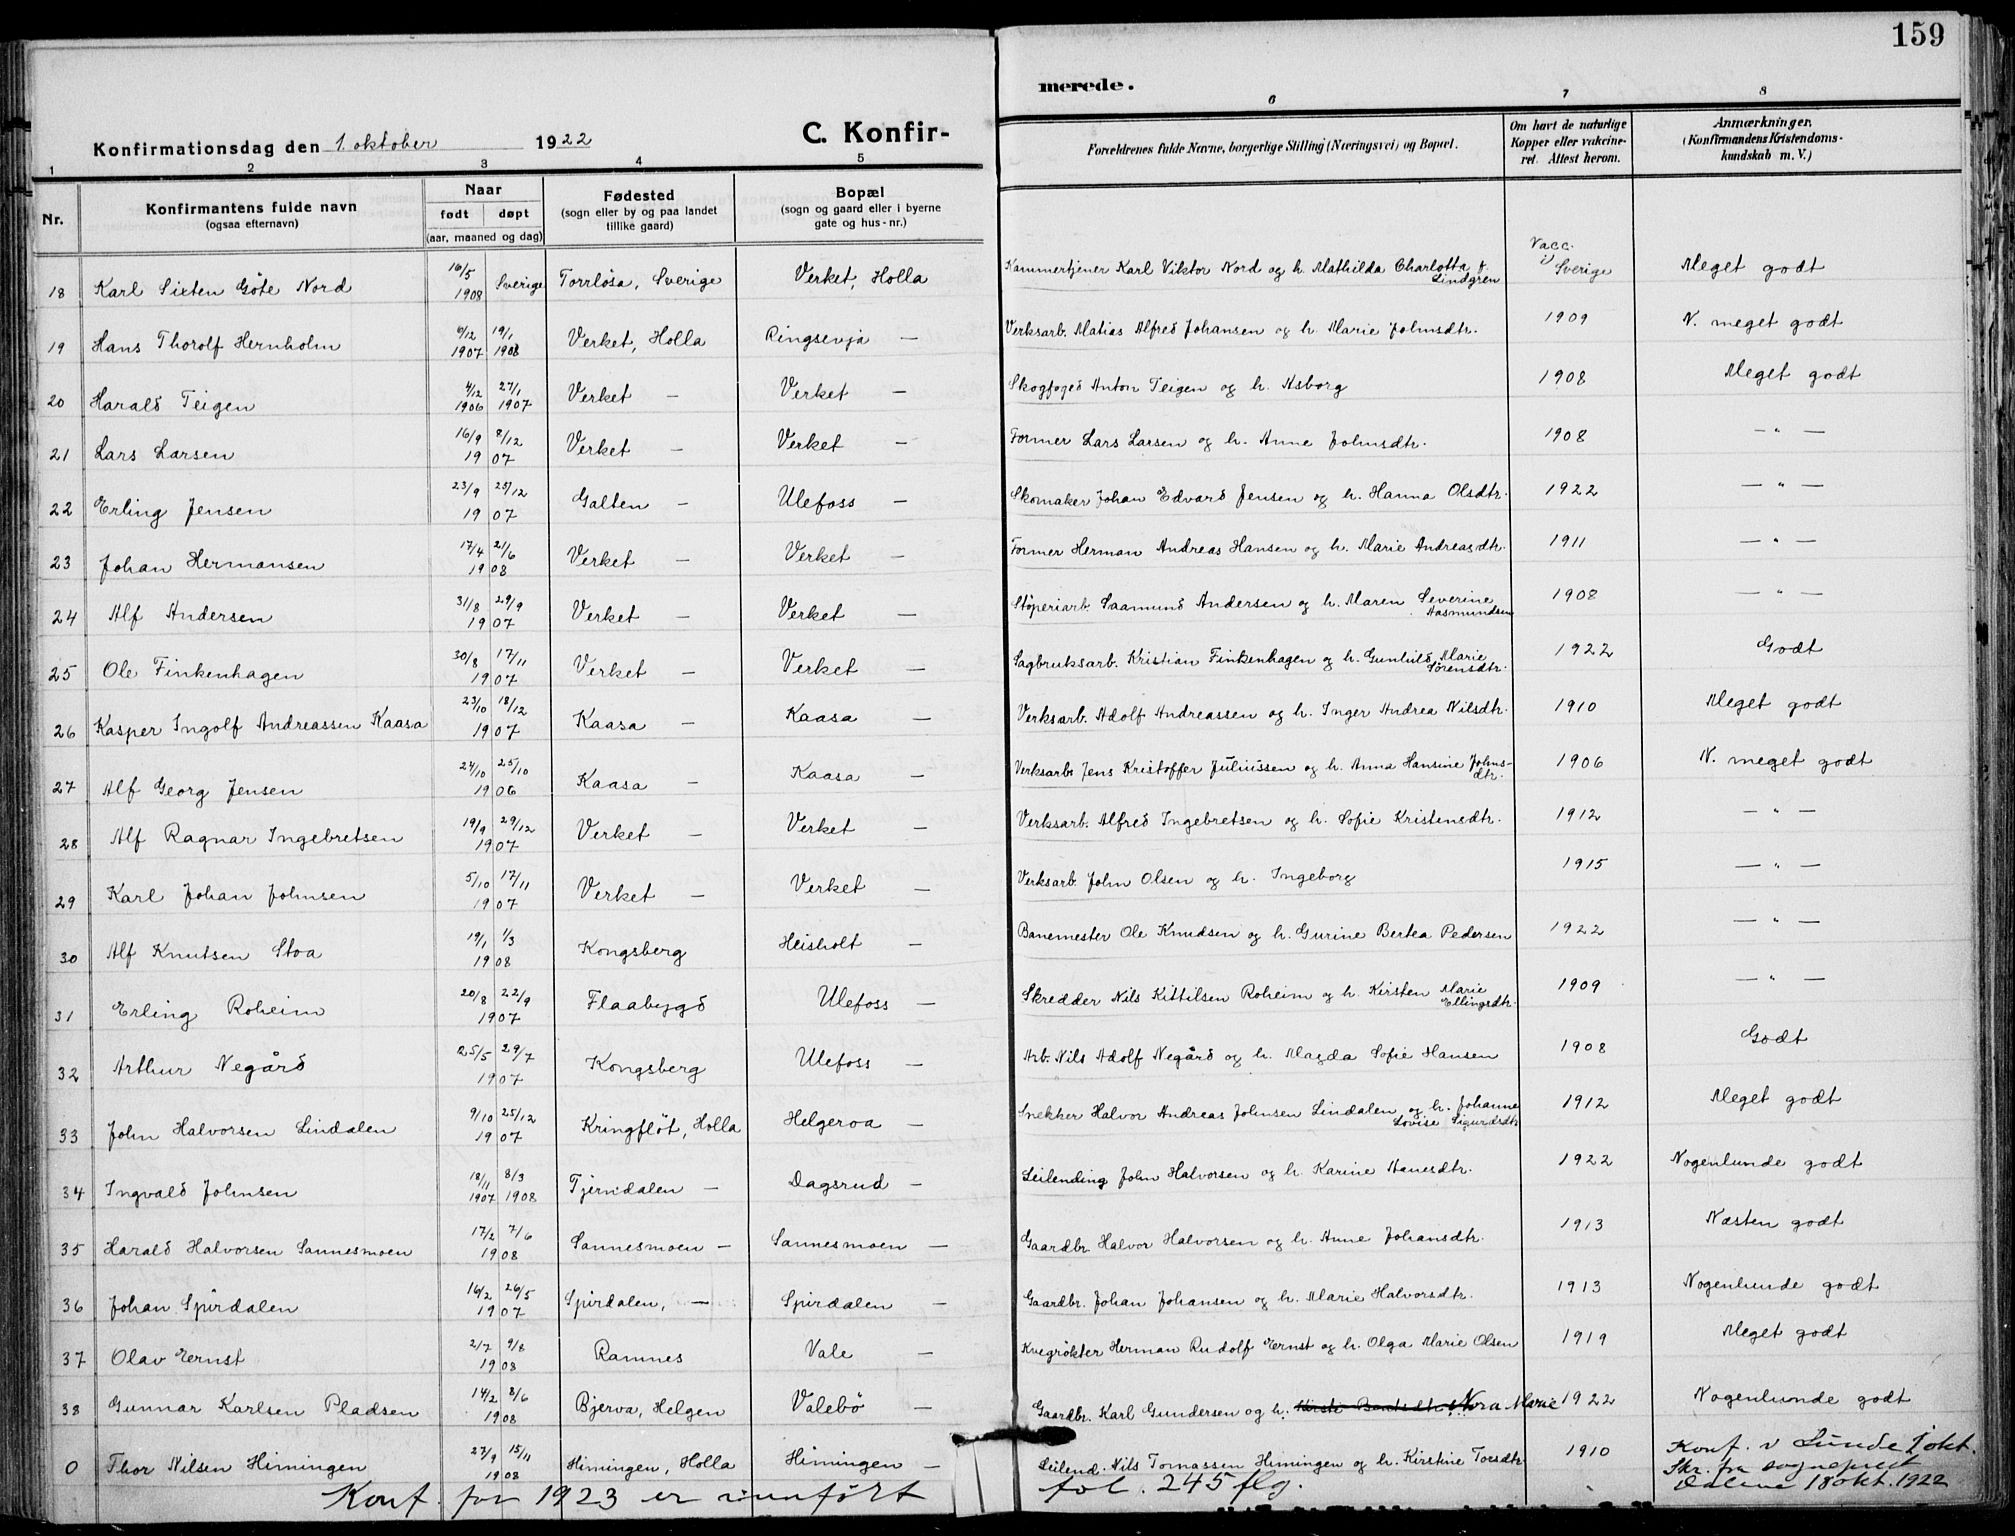 159
merede.
Konfirmationsdag den 1. oktober 1922 C. Konfir-
1 2 3 4 5 6 7 8
Nr.
Konfirmantens fulde navn
(ogsaa efternavn)
Naar
født døpt
(aar, maaned og dag)
Fødested
(sogn eller by og paa landet
tillike gaard)
Bopæl
(sogn og gaard eller i byerne
gate og hus-nr.)
Forældrenes fulde Navne, borgerlige Stilling (Næringsvei) og Bopæl.
Om havt de naturlige
Kopper eller vakcine-
ret. Attest herom.
Anmærkninger.
(Konfirmandens Kristendoms-
kundskab m. V.)
18 Karl Sixten Göte Nord 16/5 1908 Sverige Torrlösa, Sverige Verket, Holla Kammertjener Karl Viktor Nord og h. Mathilda Charlotta f. Lindgren Vacc. i Sverige Meget godt
19 Hans Thorolf Hernholm 6/12 1907 19/1 1908 Verket, Holla Ringsevja — Verksarb. Matias Alfred Johansen og h. Marie Johnsdtr. 1909 N. meget godt
20 Harald Teigen 4/12 1906 27/1 1907 Verket — Verket — Skogfoged Anton Teigen og h. Asborg 1908 Meget godt
21 Lars Larsen 16/9 8/12 1907 Verket — Verket — Former Lars Larsen og h. Anne Johnsdtr. 1908 — " —
22 Erling Jensen 23/9 25/12 1907 Galten — Ulefoss — Skomaker Johan Edvard Jensen og h. Hanna Olsdtr. 1922 — " —
23 Johan Hermansen 17/4 21/6 1908 Verket — Verket — Former Herman Andreas Hansen og h. Marie Andreasdtr. 1911 — " —
24 Alf Andersen 31/8 29/9 1907 Verket — Verket — Støperiarb. Saamund Andersen og h. Maren Severine Aasmundsen 1908 — " —
25 Ole Finkenhagen 30/8 17/11 1907 Verket — Verket — Sagbruksarb. Kristian Finkenhagen og h. Gunhild Marie Sørensdtr. 1922 Godt
26 Kasper Ingolf Andreassen Kaasa 23/10 18/12 1907 Kaasa — Kaasa — Verksarb. Adolf Andreassen og h. Inger Andrea Nilsdtr. 1910 Meget godt
27 Alf Georg Jensen 24/10 25/10 1906 Kaasa — Kaasa — Verksarb. Jens Kristoffer Juliussen og h. Anna Hansine Johns-dtr. 1906 N. meget godt
28 Alf Ragnar Ingebretsen 19/9 29/12 1907 Verket — Verket — Verksarb. Alfred Ingebretsen og h. Sofie Kristensdtr. 1912 — " —
29 Karl Johan Johnsen 5/10 17/11 1907 Verket — Verket — Verksarb. John Olsen og h. Ingeborg 1915 — " —
30 Alf Knutsen Stoa 19/1 1/3 1908 Kongsberg Heisholt — Banemester Ole Knudsen og h. Gurine Bertea Pedersen 1922 — " —
31 Erling Roheim 20/8 22/9 1907 Flaabygd Ulefoss — Skredder Nils Kittilsen Roheim og h. Kirsten Marie Ellingsdtr. 1909 — " —
32 Arthur Negård 25/5 29/7 1907 Kongsberg Ulefoss — Arb. Nils Adolf Negård og h. Magda Sofie Hansen 1908 Godt
33 John Halvorsen Lindalen 9/10 25/12 1907 Kringfløt, Holla Helgeroa — Snekker Halvor Andreas Johnsen Lindalen og h. Johanne Lovise Sigurdsdtr 1912 Meget godt
34 Ingvald Johnsen 18/11 1907 8/3 1908 Tjerndalen — Dagsrud — Leilending John Halvorsen og h. Karine Hansdtr. 1922 Nogenlunde godt
35 Harald Halvorsen Sannesmoen 17/2 7/6 1908 Sannesmoen — Sannesmoen — Gaardbr. Halvor Halvorsen og h. Anne Johansdtr. 1913 Næsten godt
36 Johan Spirdalen 16/2 26/5 1907 Spirdalen, — Spirdalen — Gaardbr. Johan Johansen og h. Marie Halvorsdtr. 1913 Nogenlunde godt
37 Olav Ernst 2/7 9/8 1908 Ramnes Vale — Kvegrøkter Herman Rudolf Ernst og h. Olga Marie Olsen 1919 Meget godt
38 Gunnar Karlsen Pladsen 14/2 8/6 1908 Bjerva, Helgen Valebö — Gaardbr. Karl Gundersen og h. Nora Marie 1922 Nogenlunde godt
0 Thor Nilsen Himingen 27/9 15/11 1908 Himingen, Holla Himingen — Leilend. Nils Tomassen Himingen og h. Kirstine Torsdtr 1910 Konf. i Lunde 1 okt.
Skr. fra sogneprest
18 okt. 1922
Konf. for 1923 er innført fol. 245 flg.